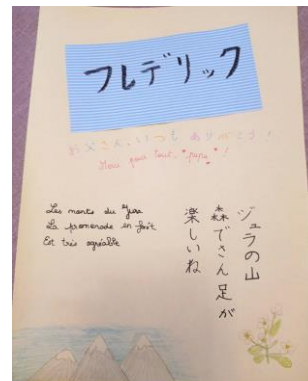 フレデリック
お父さん、いつもありがとう!
Merci pour tout, "papa" !
Les monts du Jura
La promenade en forêt
Est très agréable
ジュラの山
森でさん足が
楽しいね